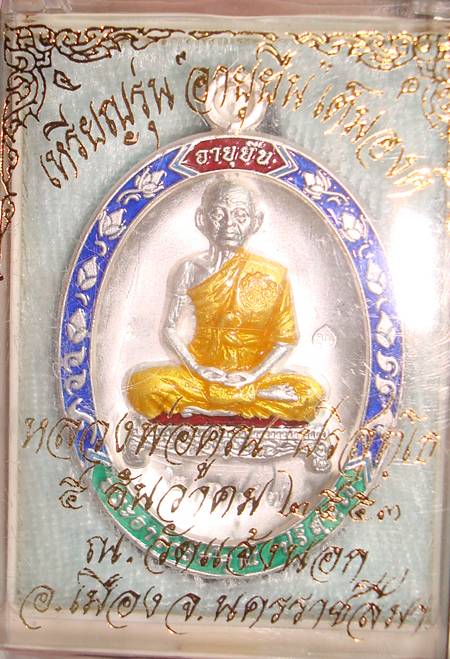 เหรียญรุ่น อายุยืน เต็มองค์
อายุยืน
หลวงพ่อคูณ ปริสุทฺโธ
๕ ธันวาคม ๒๕๕๓
ณ. วัดแจ้งนอก
อ.เมือง จ.นครราชสีมา